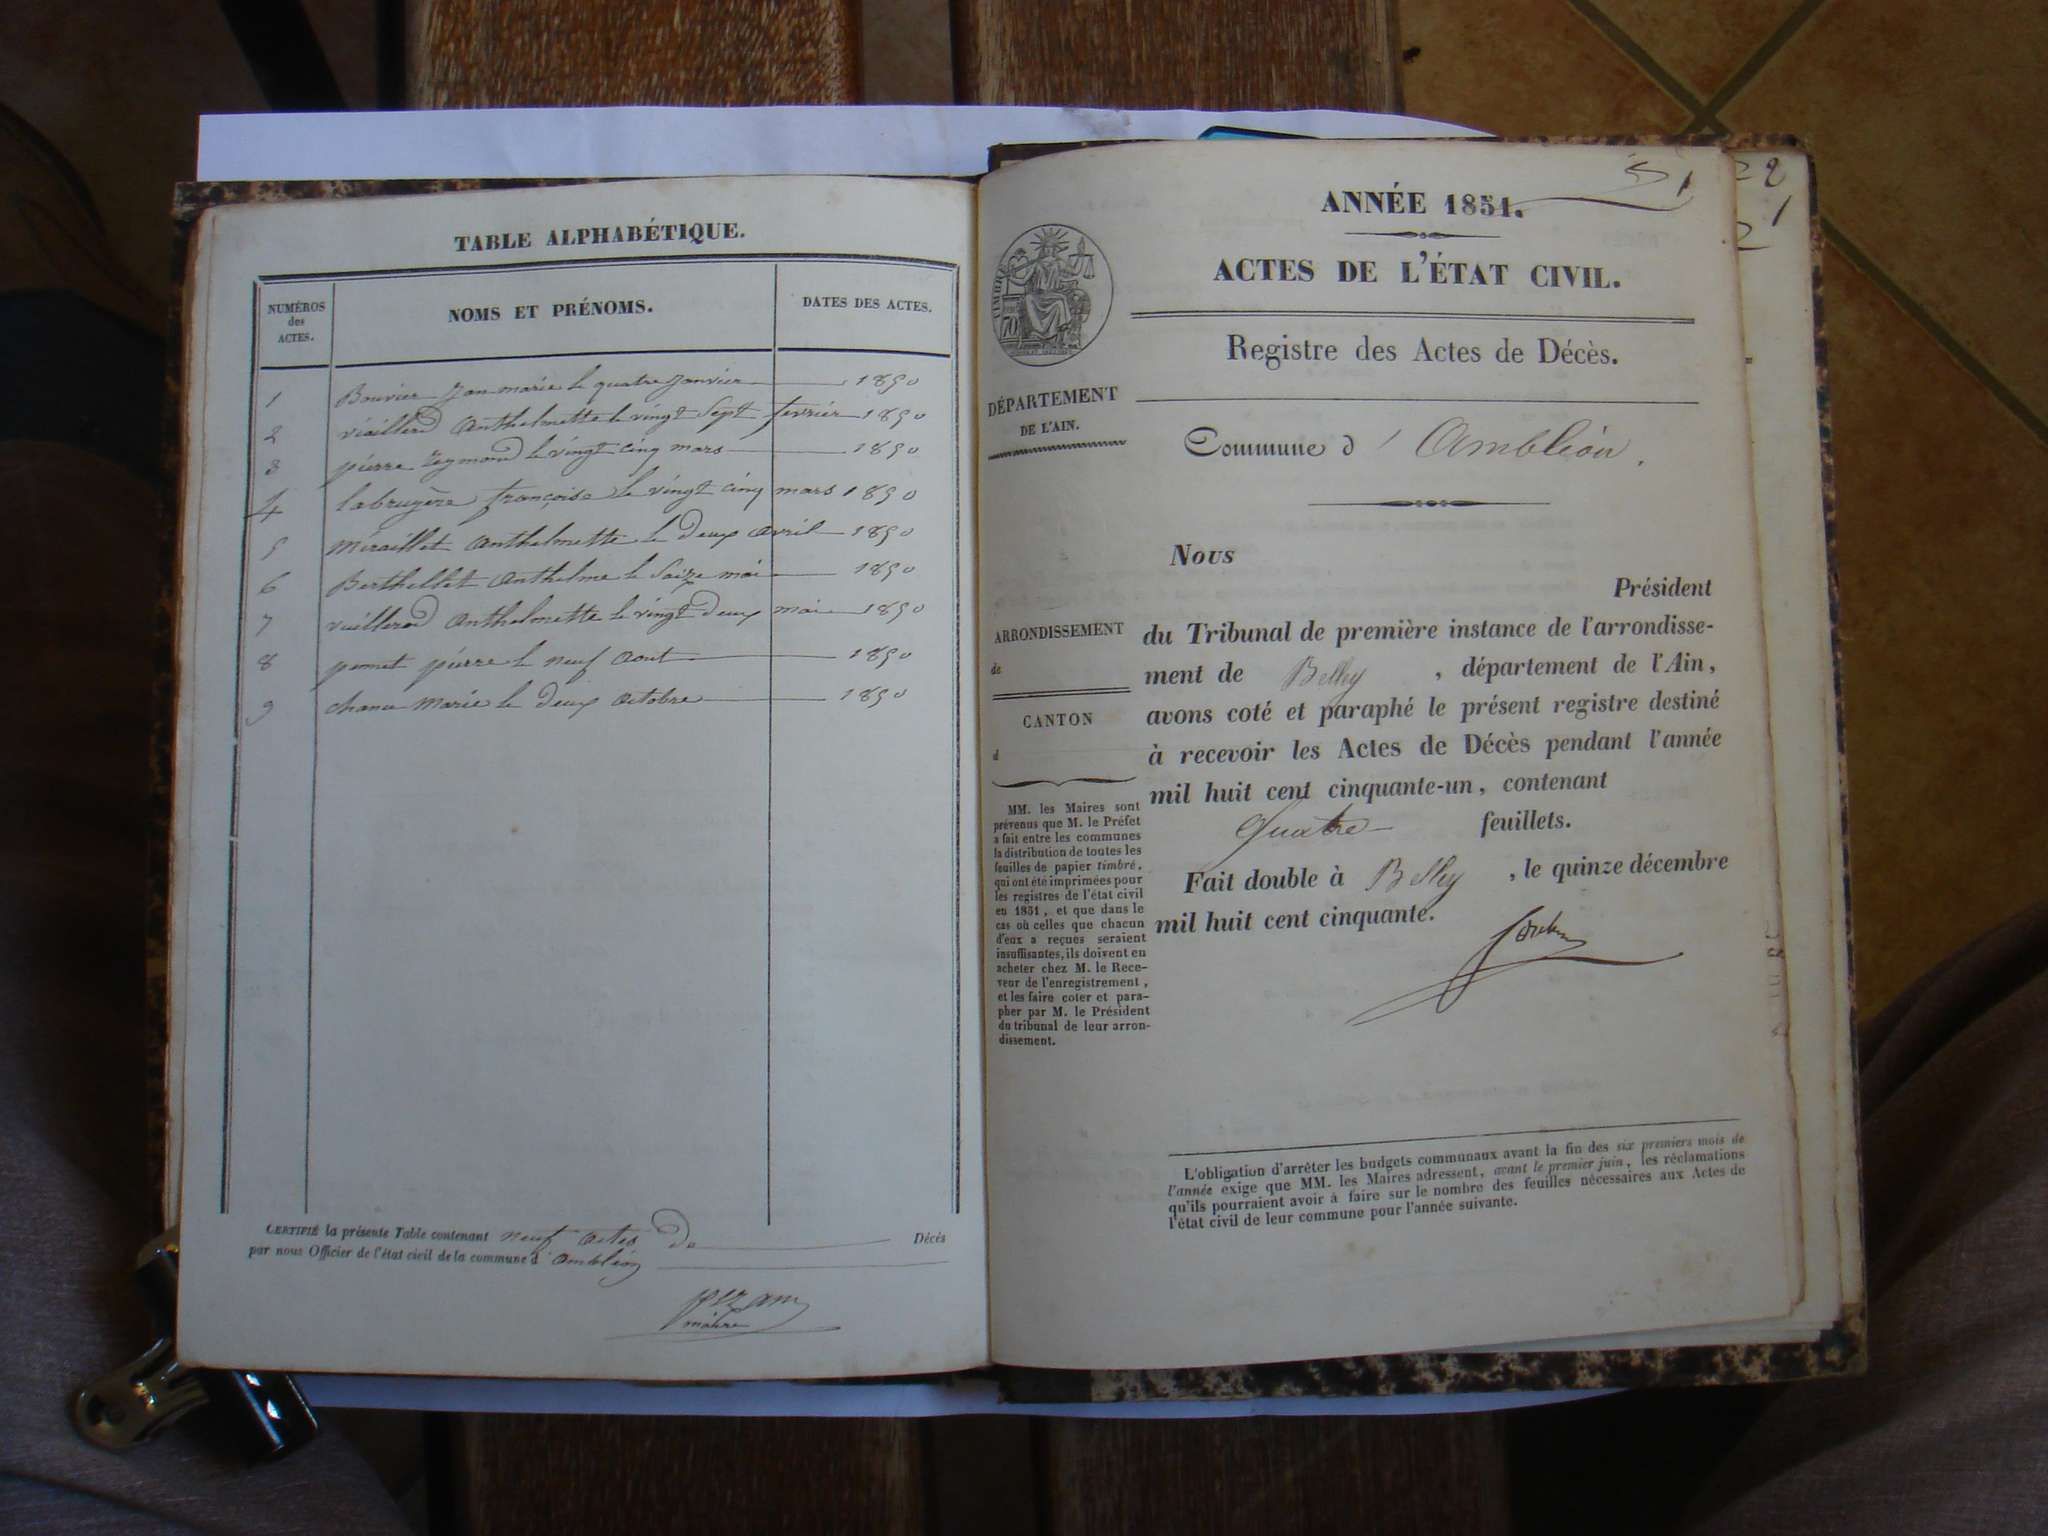 TABLE ALPHABÉTIQUE.
NUMÉROS
des
ACTES.
NOMS ET PRÉNOMS.
DATES DES ACTES.
1 Bouvier Jean marie le quatre Janvier 1850
2 Anthelmette le vingt Sept fevrier 1850
3 pierre le vingt cinq mars 1850
4 labruyère françoise le vingt cinq mars 1850
5 Miraillet Anthelmette le Deux Avril 1850
6 Berthellet Anthelme le Saize mai 1850
7 Anthelmette le vingt Deux mai 1850
8 pierre le neuf Aout 1850
9 Marie le Deux Octobre 1850
CERTIFIÉ la présente Table contenant neuf actes De Décès
par nous Officier de l'état civil de la commune d' Ambléon
maire
ANNÉE 1851.
ACTES DE L'ÉTAT CIVIL.
Registre des Actes de Décès.
DÉPARTEMENT
DE L'AIN.
Commune d' Ambléon.
Nous
Président
du Tribunal de première instance de l'arrondisse-
ment de Belley , département de l'Ain,
avons coté et paraphé le présent registre destiné
à recevoir les Actes de Décès pendant l'année
mil huit cent cinquante-un, contenant
Quatre feuillets.
Fait double à Belley , le quinze décembre
mil huit cent cinquante.
ARRONDISSEMENT
de
CANTON
d
MM. les Maires sont
prévenus que M. le Préfet
a fait entre les communes
la distribution de toutes les
feuilles de papier timbré,
qui ont été imprimées pour
les registres de l'état civil
en 1851, et que dans le
cas où celles que chacun
d'eux a reçues seraient
insuffisantes, ils doivent en
acheter chez M. le Rece-
veur de l'enregistrement,
et les faire coter et para-
pher par M. le Président
du tribunal de leur arron-
dissement.
L'obligation d'arrêter les budgets communaux avant la fin des six premiers mois de
l'année exige que MM. les Maires adressent, avant le premier juin, les réclamations
qu'ils pourraient avoir à faire sur le nombre des feuilles nécessaires aux Actes de
l'état civil de leur commune pour l'année suivante.